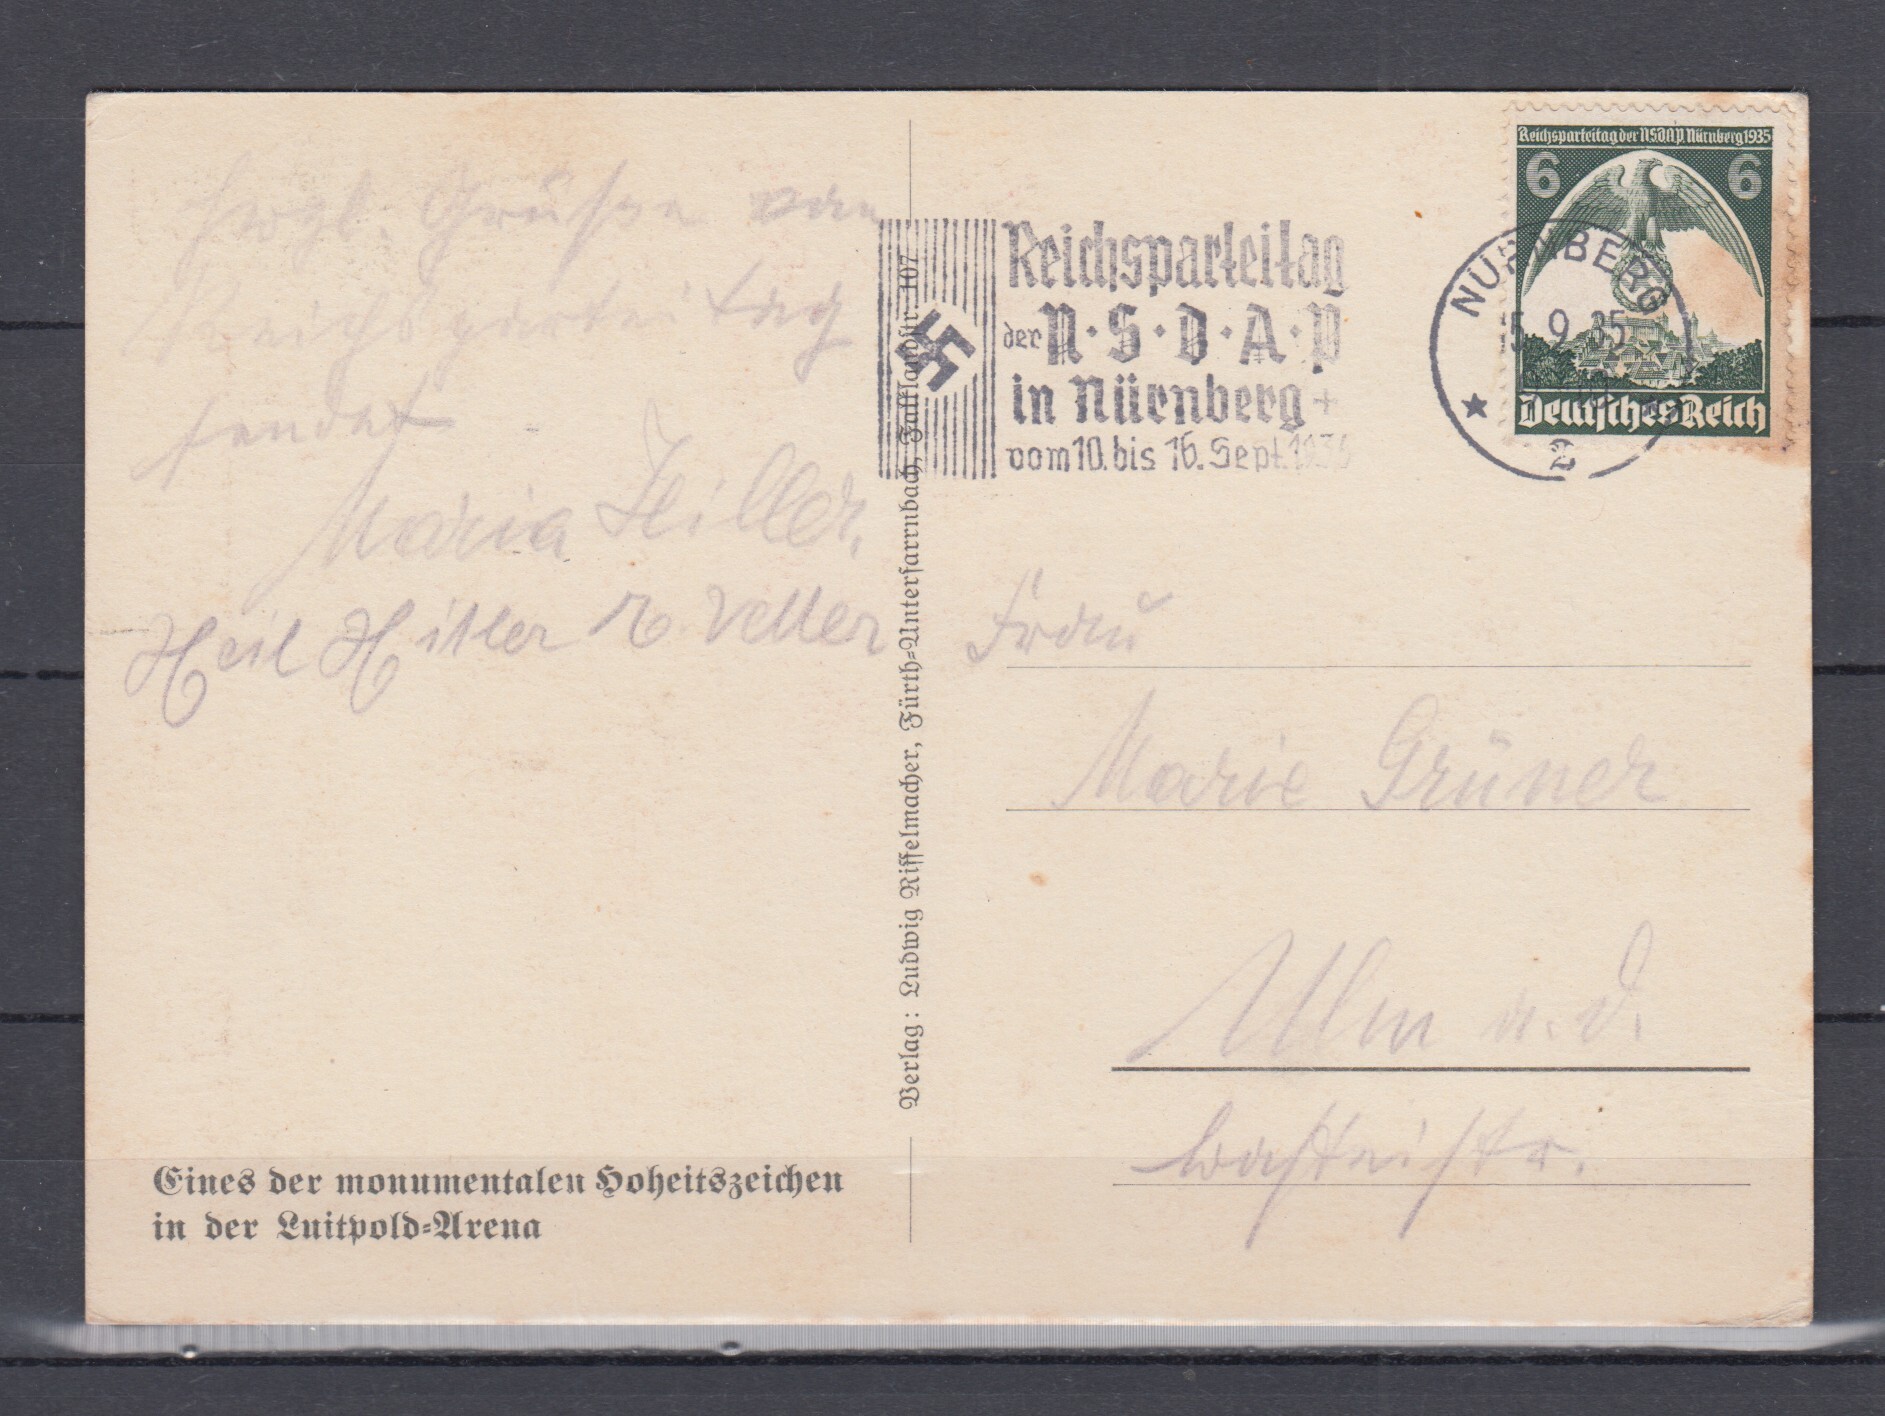 Herzl. Grüße vom
Reichsparteitag
sendet
Maria Hiller.
Heil Hitler Vetter
Eines der monumentalen Hoheitszeichen
in der Luitpold-Arena
Verlag: Ludwig Riffelmacher, Fürth-Unterfarrnbach, 107
Reichsparteitag
der N·S·D·A·P
in Nürnberg +
vom 10. bis 16. Sept. 1935
NÜRNBERG
15.9.35
2
Reichsparteitag der NSDAP Nürnberg 1935
6 6
Deutsches Reich
Frau
Marie Grüner
Ulm a. D.
Basteistr.